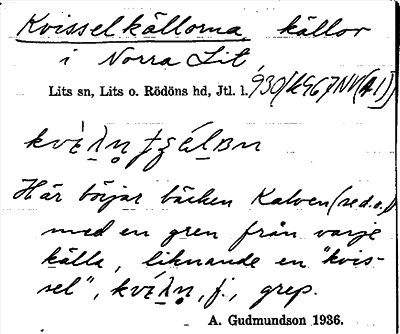 Kvisselkällorna, källor
i Norra Lit,
Lits sn, Lits o. Rödöns hd, Jtl. l.
Här börjar bäcken Kalven (se d.o.)
med en gren från varje
källa, liknande en "kvis-
sel", f., grep.
A. Gudmundson 1936.